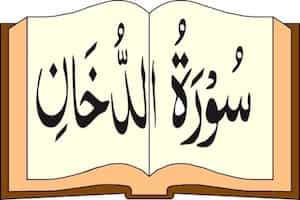 سُوْرَةُ الدُّخَانِ